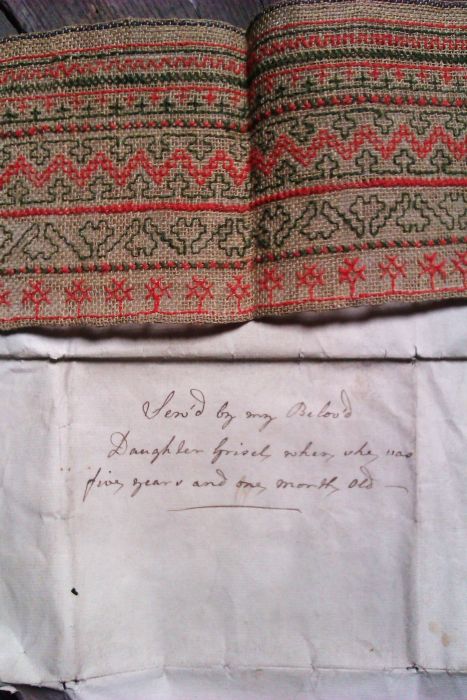 Sew'd by my Belov'd
Daughter Grisel, when she was
five years and one month old —